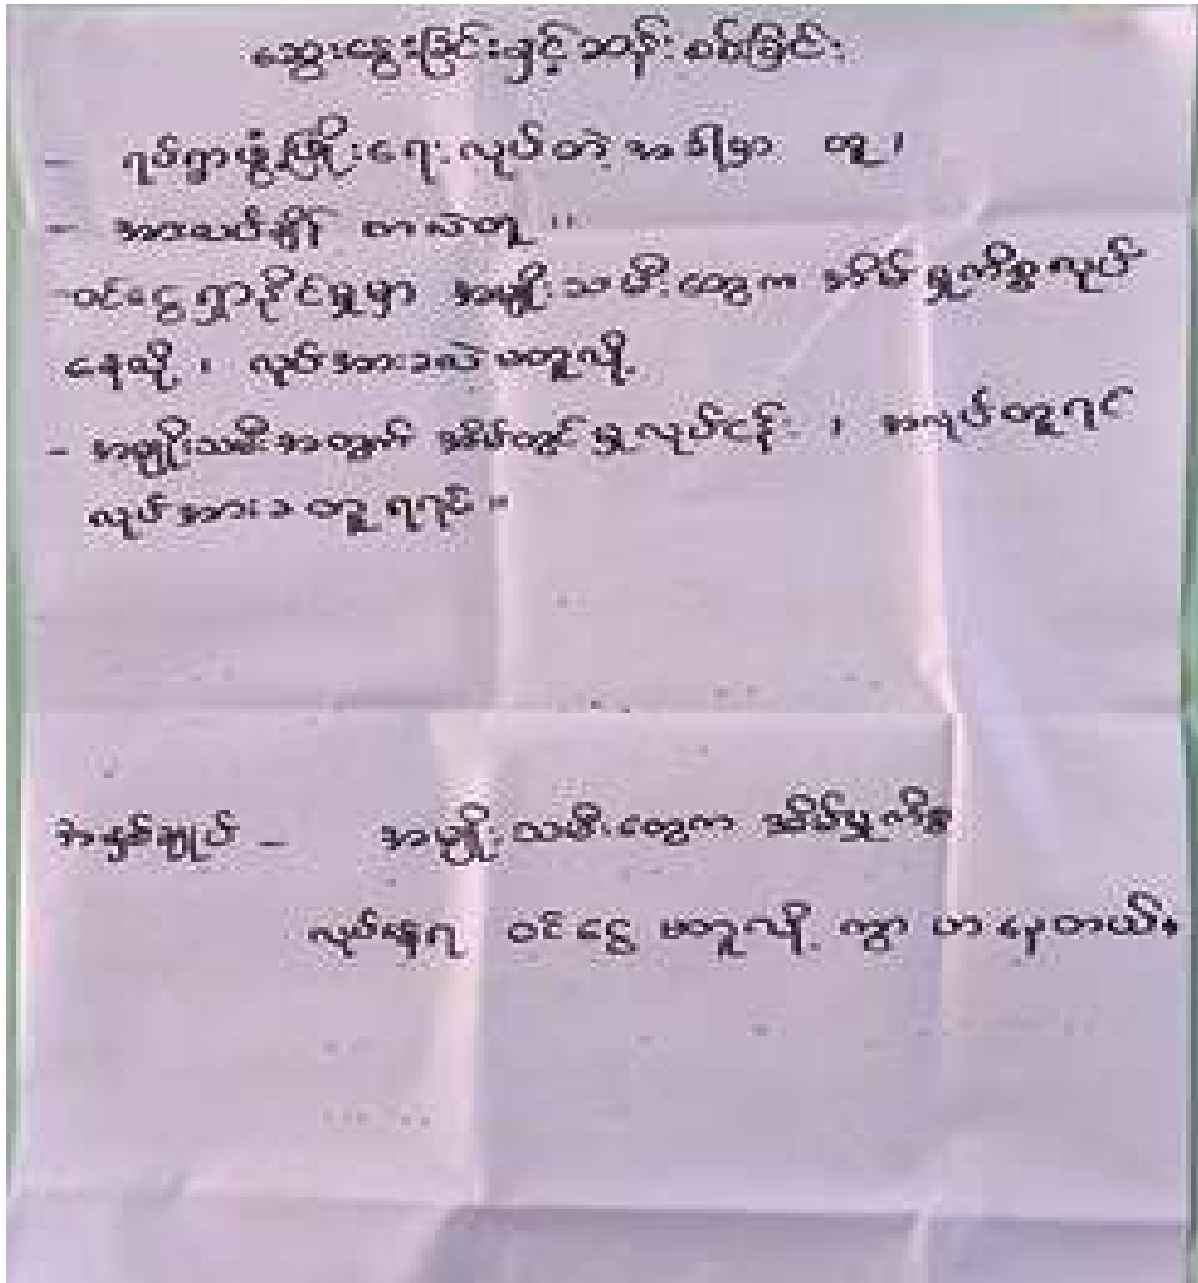 ဆွေးနွေးခြင်းနှင့် ဆန်းစစ်ခြင်း
- ရပ်ရွာဖွံ့ဖြိုးရေး လုပ်တဲ့အခါမှာ တူ၊
- အားလပ်ချိန် စာလဲတူ ။
- ဝင်ငွေရှာနိုင်မှုမှာ အမျိုးသမီးတွေက အိမ်မှုကိစ္စလုပ်
နေလို့၊ လုပ်အားခလဲ မတူလို့
- အမျိုးသမီးအတွက် အိမ်တွင်မှုလုပ်ငန်း ၊ အလုပ်တူရင်
လုပ်အားခ တူရရင်။
အနှစ်ချုပ် - အမျိုးသမီးတွေက အိမ်မှုကိစ္စ
လုပ်နေရ ဝင်ငွေ မတူလို့ ကွာဟနေတယ်။